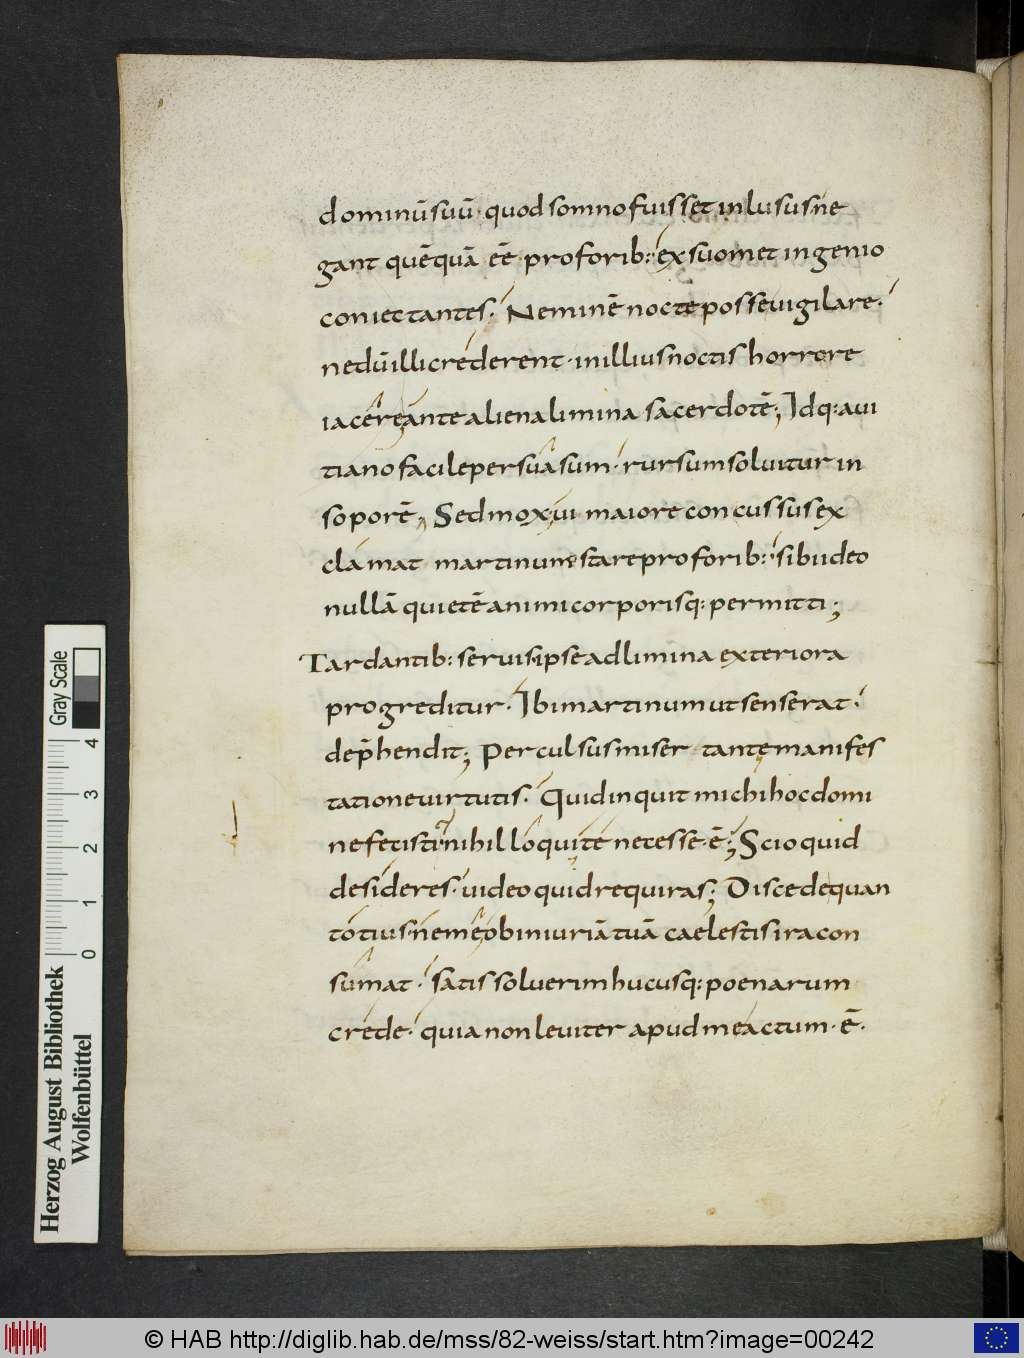 dominū suū · quod somno fuisset inlusus · ne
gant quēquā eē pro forib: ex suomet ingenio
coniectantes · Neminē nocte posse uigilare ·
nedū illi crederent · in illius noctis horrore
iacere ante aliena limina sacerdotē; Idq: aui
tiano facile persuasum · rursum soluitur in
soporē; Sed mox ui maiore concussus ex
clamat martinum stare pro forib: · sibi ideo
nullā quietē animi corporisq: permitti;
Tardantib: seruis · ipse ad limina exteriora
progreditur · Ibi martinum ut senserat ·
dep̄hendit; Perculsus miser tantę manifes
tatione uirtutis · Quid inquit mihi hoc domi
ne fecisti nihil loqui te necesse · ē; Scio quid
desideres · uideo quid requiras; Discede quan
totius · ne mę ob iniuriā tuā caelestis ira con
sumat · satis soluerim hucusq: poenarum
crede · quia non leuiter apud me actum · ē ·
Herzog August Bibliothek
Wolfenbüttel
Gray Scale
0 1 2 3 4
© HAB http://diglib.hab.de/mss/82-weiss/start.htm?image=00242